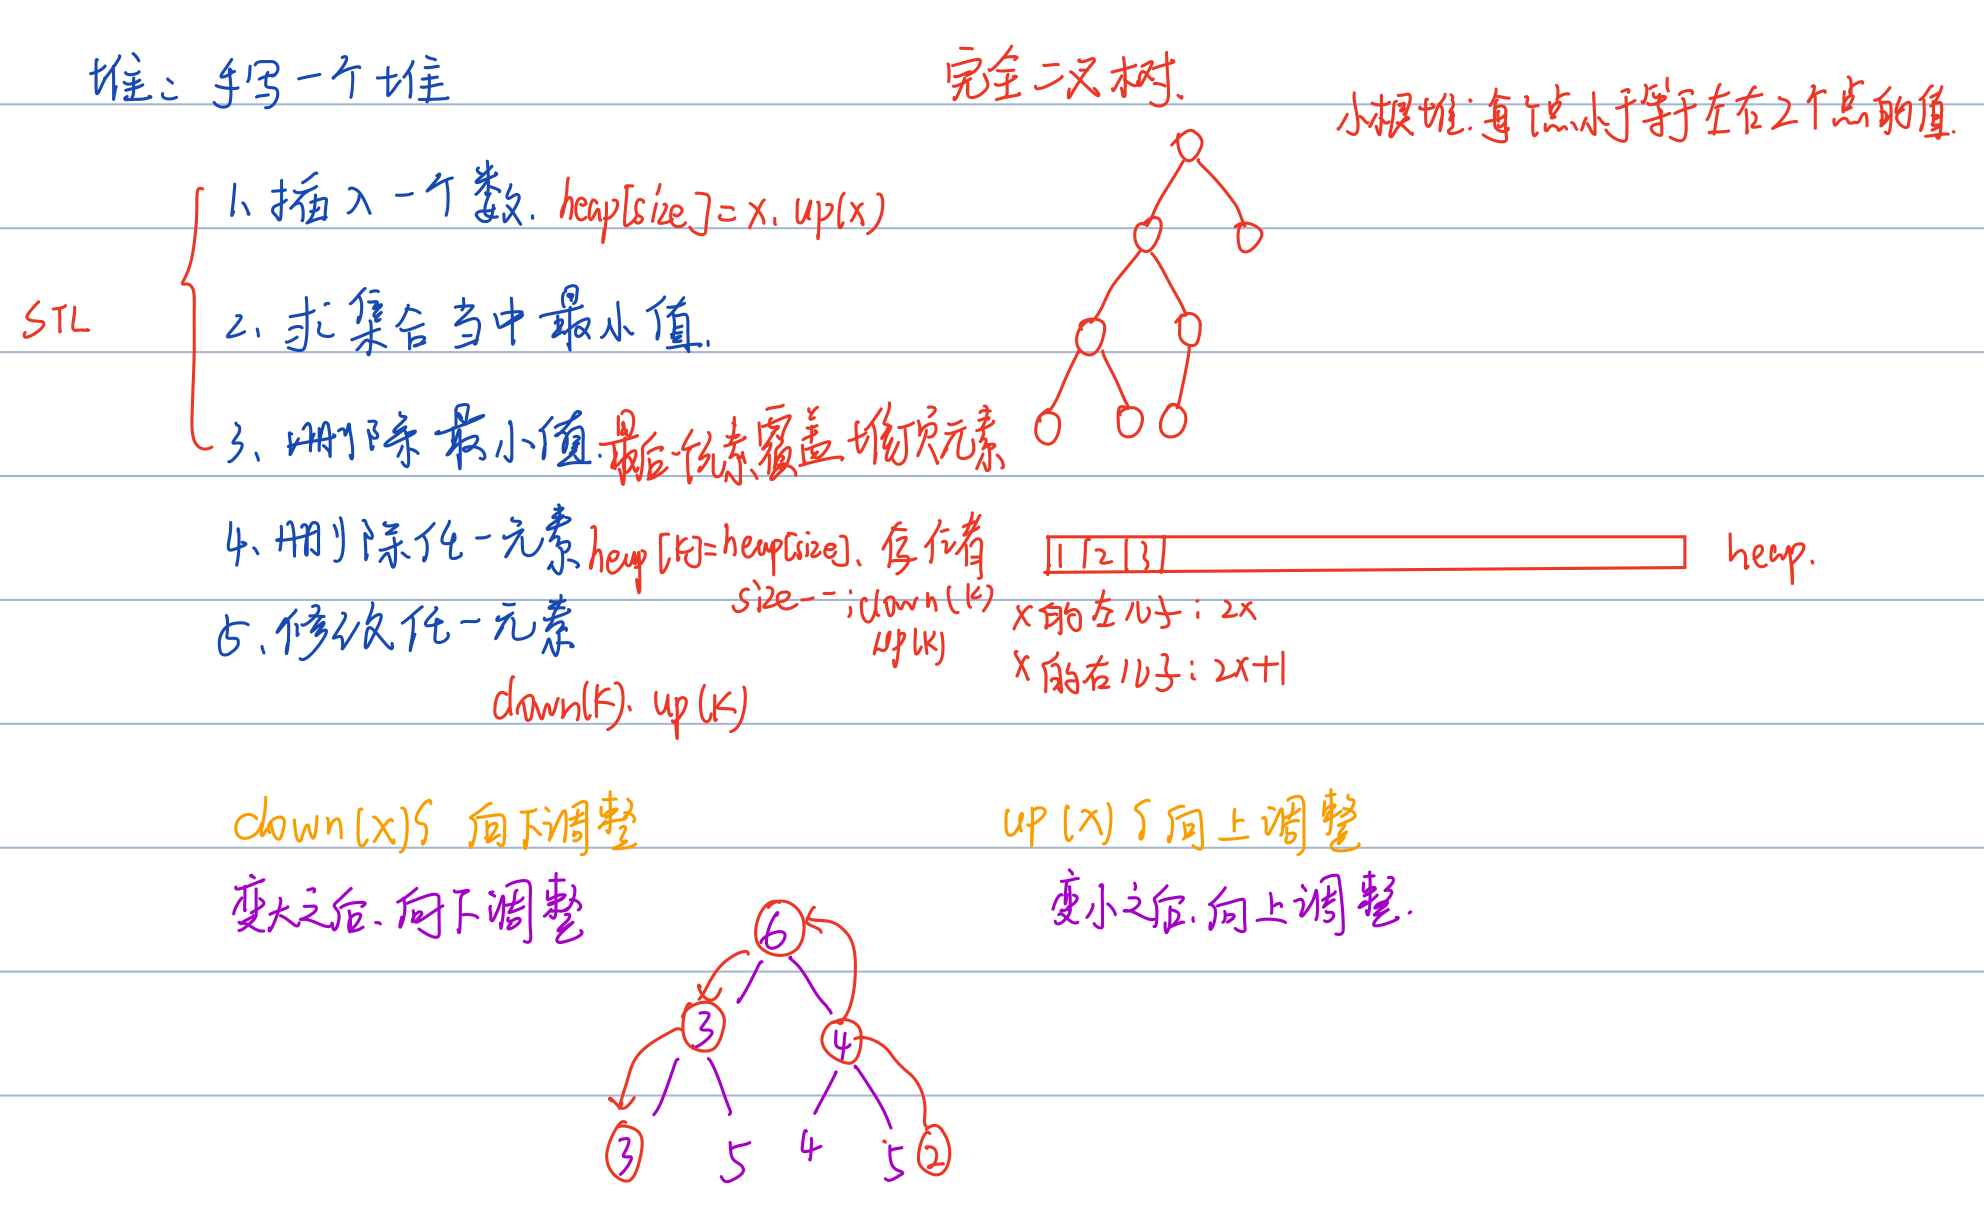 堆: 手写一个堆
完全二叉树.
小根堆: 每个点小于等于左右2个点的值.
STL
1、插入一个数. heap[size]=x. up(x)
2、求集合当中最小值.
3、删除最小值. 最后一个元素覆盖堆顶元素
4、删除任一元素 heap[k]=heap[size].
size--; down(k)
up(k)
5、修改任一元素
down(k). up(k)
1 2 3
heap.
x的左儿子: 2x
x的右儿子: 2x+1
down(x){ 向下调整
up(x){ 向上调整
变大之后、向下调整
变小之后, 向上调整.
6
3 4
3 5 4 5 2